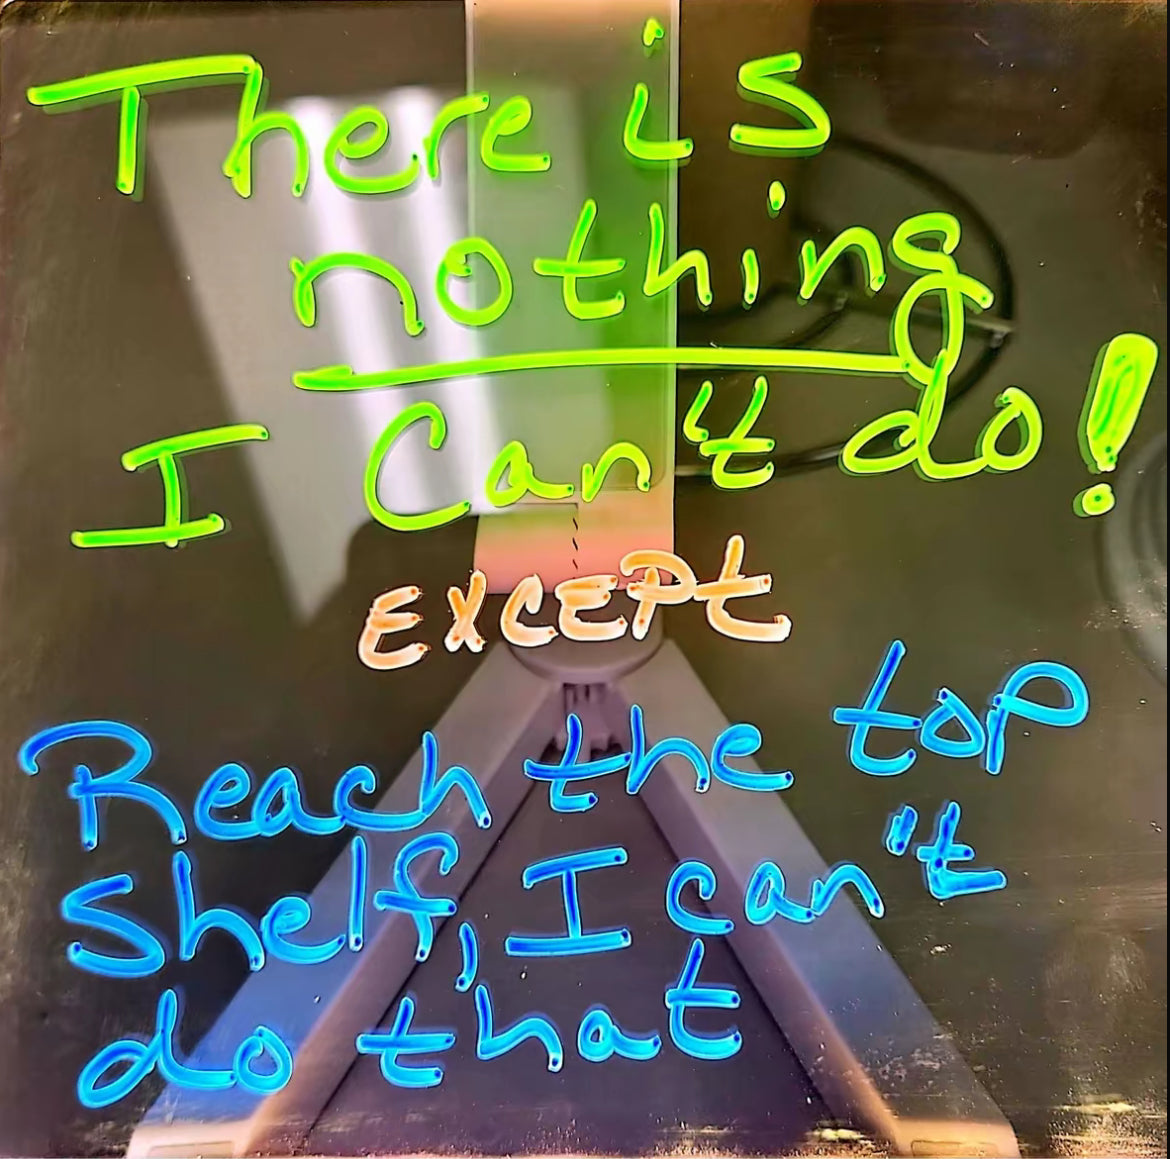 There is
nothing
I Can't do!
EXCEPt
Reach the top
shelf, I can't
do that